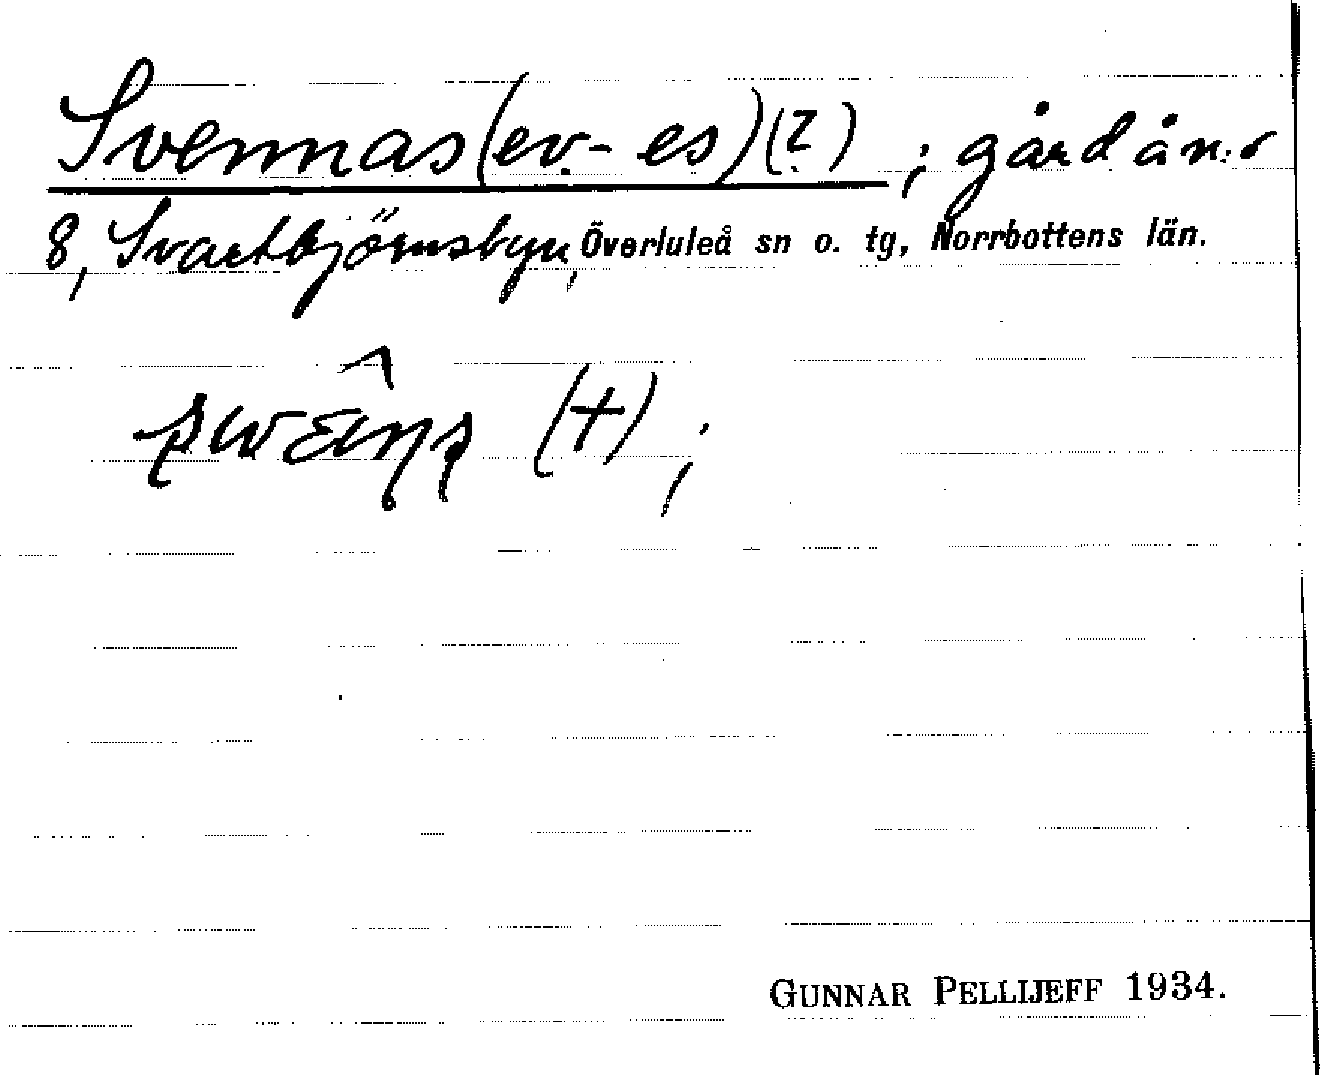 Svennas (ev. -es) (?) ; gård å n:r
8, Svartbjörnsbyn, Överluleå sn o. tg, Norrbottens län.
(+) ;
GUNNAR PELLIJEFF 1934.